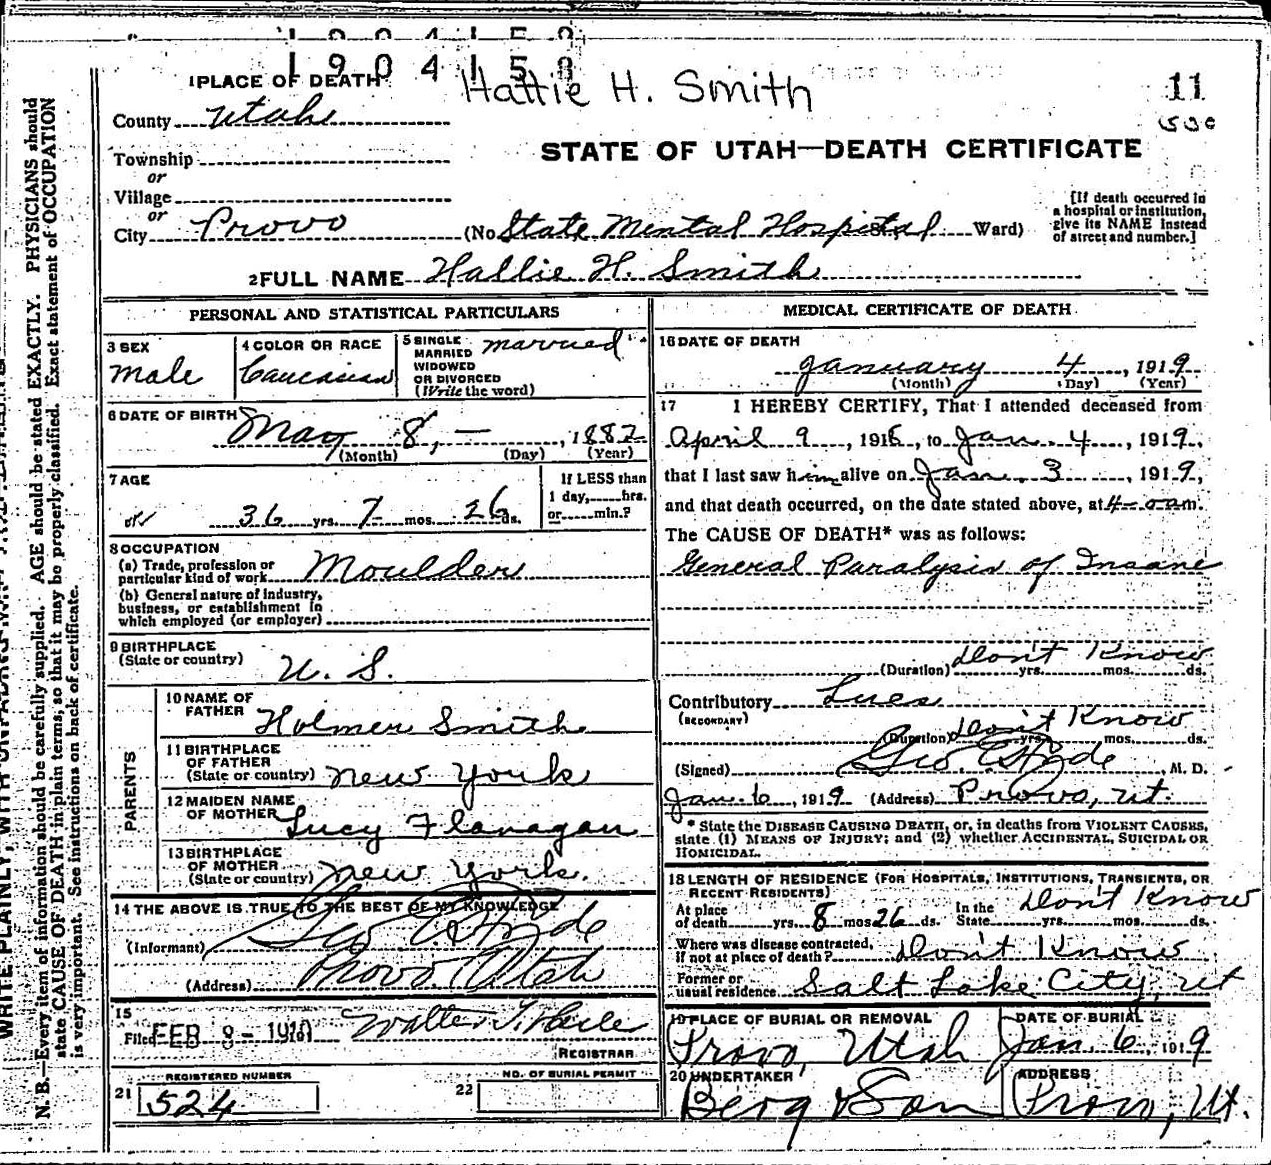 1904158
1904158
Hattie H. Smith
11
1 PLACE OF DEATH
County Utah
STATE OF UTAH—DEATH CERTIFICATE
Township
or
Village
or
City Provo (No. State Mental Hospital Ward)
[If death occurred in a hospital or institution, give its NAME instead of street and number.]
2 FULL NAME Hallie H. Smith
PERSONAL AND STATISTICAL PARTICULARS
3 SEX
Male
4 COLOR OR RACE
Caucasian
5 SINGLE
MARRIED
WIDOWED
OR DIVORCED
(Write the word)
married
6 DATE OF BIRTH
May 8, — , 1882
(Month) (Day) (Year)
7 AGE
36 yrs. 7 mos. 26 ds.
If LESS than
1 day, hrs.
or min.?
8 OCCUPATION
(a) Trade, profession or
particular kind of work Moulder
(b) General nature of industry,
business, or establishment in
which employed (or employer)
9 BIRTHPLACE
(State or country) U. S.
PARENTS
10 NAME OF
FATHER Holmer Smith
11 BIRTHPLACE
OF FATHER
(State or country) New York
12 MAIDEN NAME
OF MOTHER Lucy Flanagan
13 BIRTHPLACE
OF MOTHER
(State or country) New York.
14 THE ABOVE IS TRUE TO THE BEST OF MY KNOWLEDGE
(Informant) Geo. E. Hyde
(Address) Provo Utah
15
Filed FEB 8 - 1919 Walter T.
REGISTRAR
REGISTERED NUMBER
21 524
22 NO. OF BURIAL PERMIT
MEDICAL CERTIFICATE OF DEATH
16 DATE OF DEATH
January 4 , 1919
(Month) (Day) (Year)
17 I HEREBY CERTIFY, That I attended deceased from
April 9 , 1918, to Jan. 4 , 1919,
that I last saw him alive on Jan. 3 , 1919,
and that death occurred, on the date stated above, at 4-0 am.
The CAUSE OF DEATH* was as follows:
General Paralysis of Insane
(Duration) Don't Know yrs. mos. ds.
Contributory Lues
(SECONDARY)
(Duration) Don't Know yrs. mos. ds.
(Signed) Geo. E. Hyde M. D.
Jan. 6 , 1919 (Address) Provo, Ut.
* State the DISEASE CAUSING DEATH, or, in deaths from VIOLENT CAUSES,
state (1) MEANS OF INJURY; and (2) whether ACCIDENTAL, SUICIDAL OR
HOMICIDAL.
18 LENGTH OF RESIDENCE (FOR HOSPITALS, INSTITUTIONS, TRANSIENTS, OR
RECENT RESIDENTS)
At place
of death yrs. 8 mos 26 ds. In the
State Don't Know yrs. mos. ds.
Where was disease contracted,
if not at place of death? Don't Know
Former or
usual residence Salt Lake City, Ut
19 PLACE OF BURIAL OR REMOVAL
Provo, Utah
DATE OF BURIAL
Jan. 6, 1919
20 UNDERTAKER
Berg & Son
ADDRESS
Provo, Ut.
N. B.—Every item of information should be carefully supplied. AGE should be stated EXACTLY. PHYSICIANS should
state CAUSE OF DEATH in plain terms, so that it may be properly classified. Exact statement of OCCUPATION
is very important. See instructions on back of certificate.
WRITE PLAINLY, WITH